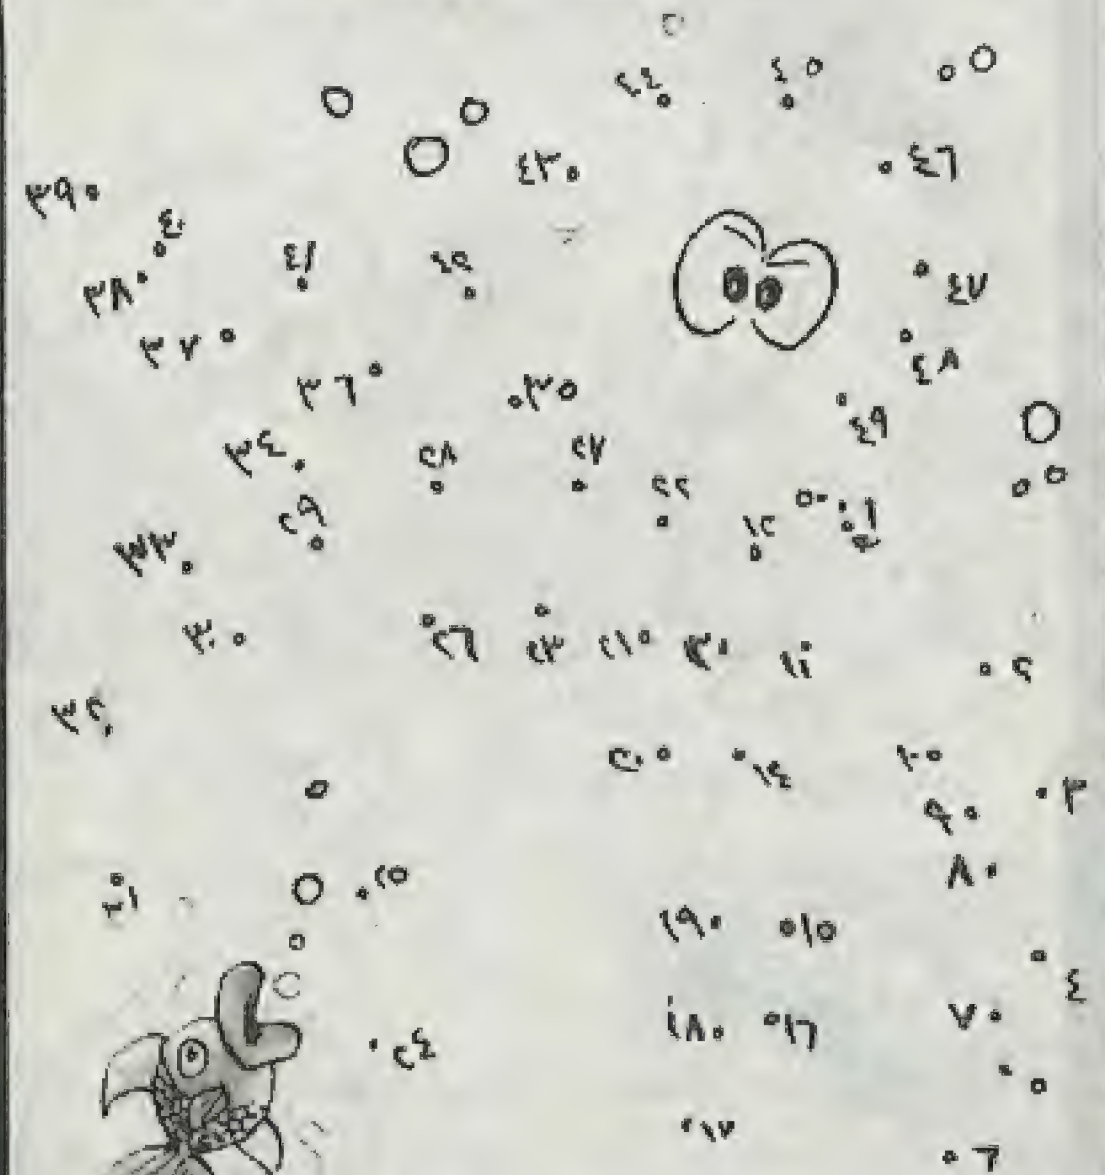 ٤٤
٤٥
٤٣
٤٦
٣٩
٤٠
٤١
٤٢
٤٧
٣٨
٣٧
٤٨
٣٦
٣٥
٤٩
٣٤
٢٨
٢٧
٢٢
٢٩
١٢
٥٠
٥١
٣٣
٣٠
٢٦
٢٣
٢١
١٣
١١
٢
٣٢
٢٠
١٤
١٠
٣
٩
٨
٣١
٢٥
١٩
١٥
٤
١٨
١٦
٧
٢٤
٥
١٧
٦